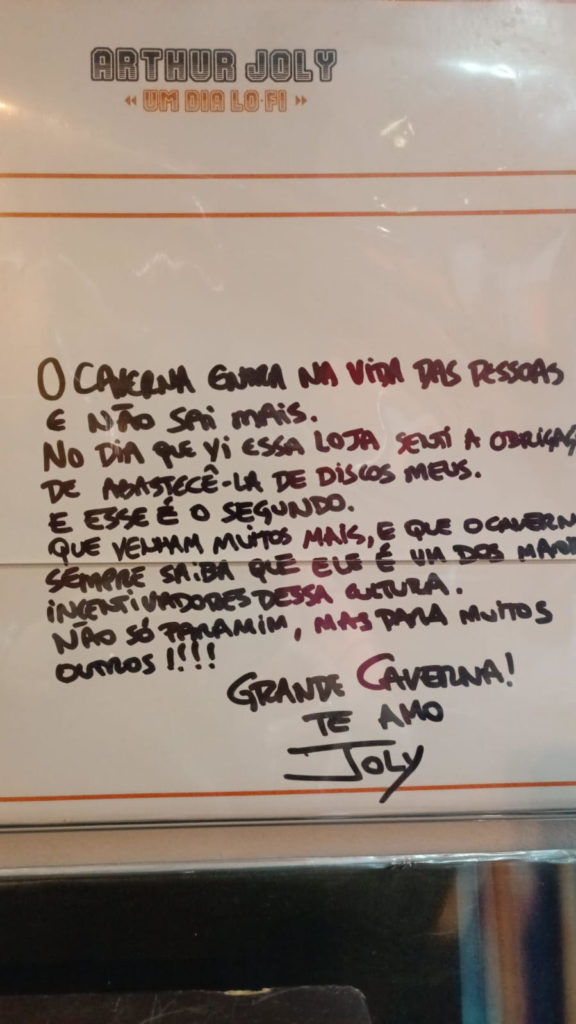 ARTHUR JOLY
« UM DIA LO-FI »
O CAVERNA ENTRA NA VIDA DAS PESSOAS
E NÃO SAI MAIS.
NO DIA QUE VI ESSA LOJA SENTI A OBRIGAÇ
DE ABASTECÊ-LA DE DISCOS MEUS.
E ESSE É O SEGUNDO.
QUE VENHAM MUITOS MAIS, E QUE O CAVERN
SEMPRE SAIBA QUE ELE É UM DOS MAIO
INCENTIVADORES DESSA CULTURA.
NÃO SÓ PARA MIM, MAS PARA MUITOS
OUTROS!!!!
GRANDE CAVERNA!
TE AMO
JOLY